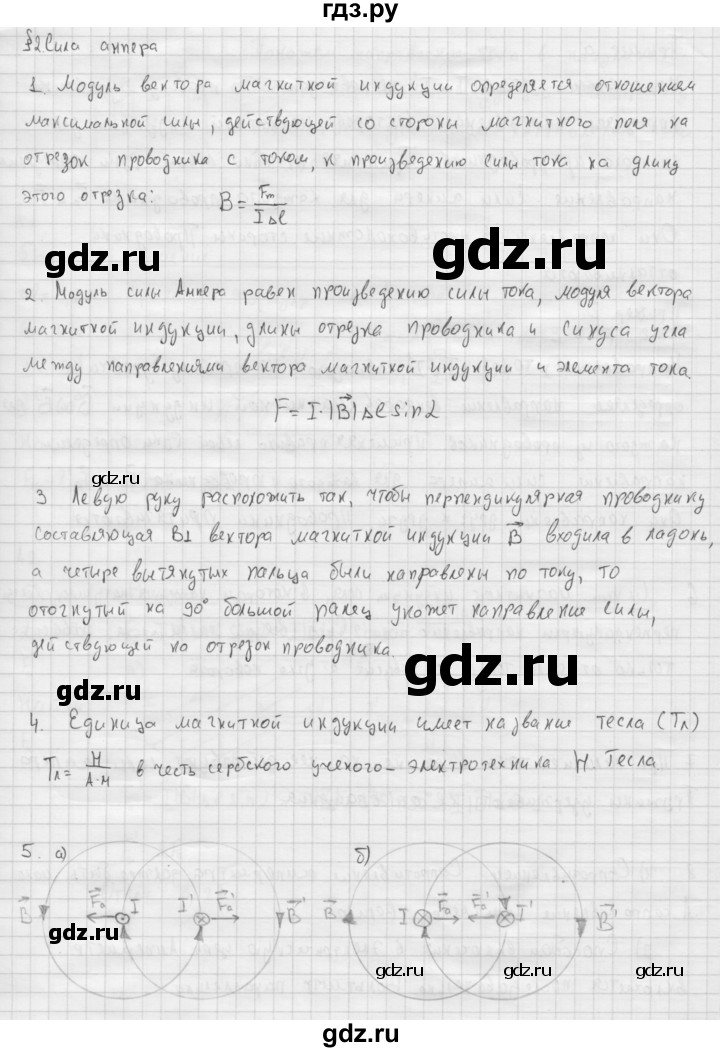 гдз.ру
§2 Сила ампера
1. Модуль вектора магнитной индукции определяется отношением
максимальной силы, действующей со стороны магнитного поля на
отрезок проводника с током, к произведению силы тока на длину
этого отрезка: B = Fm / IΔl
gdz.ru gdz.ru
2. Модуль силы Ампера равен произведению силы тока, модуля вектора
магнитной индукции, длины отрезка проводника и синуса угла
между направлениями вектора магнитной индукции и элемента тока.
F = I·|B|Δl sin α
gdz.ru
3 Левую руку расположить так, чтобы перпендикулярная проводнику
составляющая B⊥ вектора магнитной индукции B входила в ладонь,
а четыре вытянутых пальца были направлены по току, то
отогнутый на 90° большой палец укажет направление силы,
действующей на отрезок проводника.
gdz.ru gdz.ru
4. Единица магнитной индукции имеет название тесла (Тл)
Тл = Н / А·м в честь сербского ученого-электротехника Н Тесла
5. а) б)
B Fa I I' Fa B' B I Fa Fa' I' B'
gdz.ru gdz.ru gdz.ru
gdz.ru